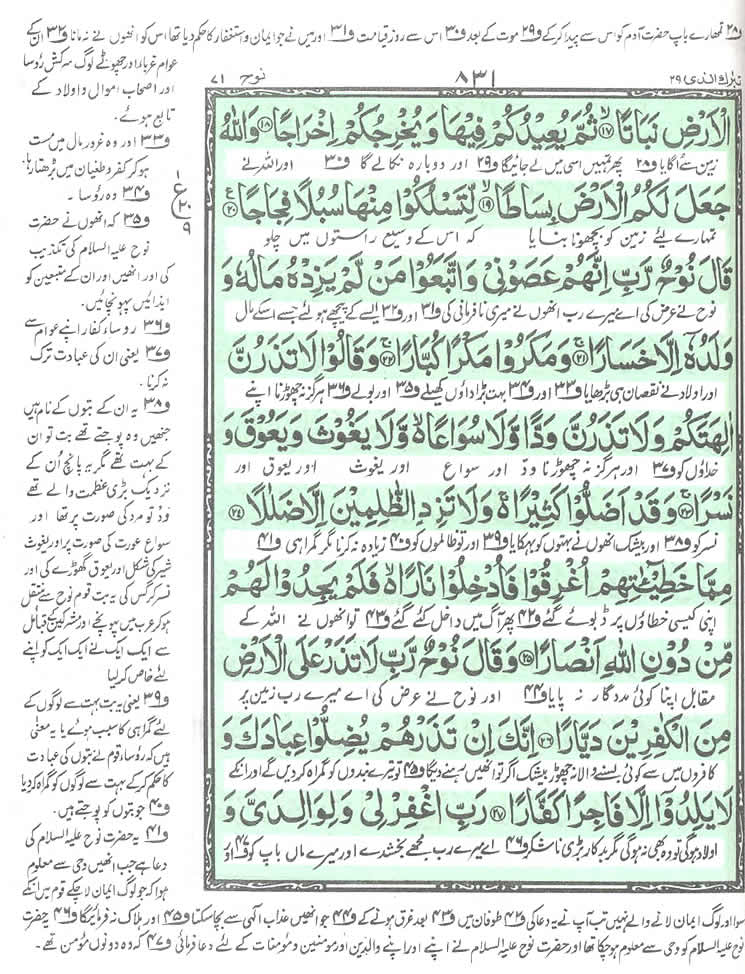 و۲۸ تمھارے باپ حضرت آدم کو اس سے پیدا کرکے و۲۹ موت کے بعد و۳۰ اس سے روز قیامت و۳۱ اور میں نے جو ایمان و استغفار کا حکم دیا تھا اس کو انھوں نے نہ مانا و۳۲ ان کے
تبٰرك الذی ۲۹
۸۳۱
نوح ۷۱
الْاَرْضِ نَبَاتًا ۙ۱۷ ثُمَّ یُعِیْدُكُمْ فِیْهَا وَ یُخْرِجُكُمْ اِخْرَاجًا ۱۸ وَ اللّٰهُ
زمین سے اُگایا و۲۸ پھر تمہیں اسی میں لے جائیگا و۲۹ اور دوبارہ نکالے گا و۳۰ اور اللہ نے
جَعَلَ لَكُمُ الْاَرْضَ بِسَاطًا ۙ۱۹ لِّتَسْلُكُوْا مِنْهَا سُبُلًا فِجَاجًا ۠۲۰
تمہارے لئے زمین کو بچھونا بنایا کہ اس کے وسیع راستوں میں چلو
قَالَ نُوْحٌ رَّبِّ اِنَّهُمْ عَصَوْنِیْ وَ اتَّبَعُوْا مَنْ لَّمْ یَزِدْهُ مَالُهٗ وَ
نوح نے عرض کی اے میرے رب انھوں نے میری نافرمانی کی و۳۱ اور و۳۲ ایسے کے پیچھے ہولئے جسے اسکے مال
وَلَدُهٗۤ اِلَّا خَسَارًا ۚ۲۱ وَ مَكَرُوْا مَكْرًا كُبَّارًا ۚ۲۲ وَ قَالُوْا لَا تَذَرُنَّ
اور اولاد نے نقصان ہی بڑھایا و۳۳ اور و۳۴ بہت بڑا داؤں کھیلے و۳۵ اور بولے و۳۶ ہرگز نہ چھوڑنا اپنے
اٰلِهَتَكُمْ وَ لَا تَذَرُنَّ وَدًّا وَّ لَا سُوَاعًا ۙ وَّ لَا یَغُوْثَ وَ یَعُوْقَ وَ
خداؤں کو و۳۷ اور ہرگز نہ چھوڑنا ودّ اور سواع اور یغوث اور یعوق اور
نَسْرًا ۚ۲۳ وَ قَدْ اَضَلُّوْا كَثِیْرًا ۬ وَ لَا تَزِدِ الظّٰلِمِیْنَ اِلَّا ضَلٰلًا ۲۴
نسر کو و۳۸ اور بیشک انھوں نے بہتوں کو بہکایا و۳۹ اور تو ظالموں کو و۴۰ زیادہ نہ کرنا مگر گمراہی و۴۱
مِمَّا خَطِیْٓــٰٔتِهِمْ اُغْرِقُوْا فَاُدْخِلُوْا نَارًا ۙ فَلَمْ یَجِدُوْا لَهُمْ
اپنی کیسی خطاؤں پر ڈبوئے گئے و۴۲ پھر آگ میں داخل کئے گئے و۴۳ تو انھوں نے اللہ کے
مِّنْ دُوْنِ اللّٰهِ اَنْصَارًا ۲۵ وَ قَالَ نُوْحٌ رَّبِّ لَا تَذَرْ عَلَی الْاَرْضِ
مقابل اپنا کوئی مددگار نہ پایا و۴۴ اور نوح نے عرض کی اے میرے رب زمین پر
مِنَ الْكٰفِرِیْنَ دَیَّارًا ۲۶ اِنَّكَ اِنْ تَذَرْهُمْ یُضِلُّوْا عِبَادَكَ وَ
کافروں میں سے کوئی بسنے والا نہ چھوڑ بیشک اگر تو انھیں رہنے دیگا و۴۵ تو تیرے بندوں کو گمراہ کردیں گے اور انکے
لَا یَلِدُوْۤا اِلَّا فَاجِرًا كَفَّارًا ۲۷ رَبِّ اغْفِرْ لِیْ وَ لِوَالِدَیَّ وَ
اولاد ہوگی تو وہ بھی نہ ہوگی مگر بدکار بڑی ناشکر و۴۶ اے میرے رب مجھے بخشدے اور میرے ماں باپ کو و۴۷ اور
عوام غرباء اور چھوٹے لوگ سرکش رؤسا
اور اصحاب اموال و اولاد کے
تابع ہوئے۔
و۳۳ اور وہ غرور مال میں مست
ہوکر کفر و طغیان میں بڑھتا رہا
و۳۴ وہ رؤسا ۔
و۳۵ کہ انھوں نے حضرت
نوح علیہ السلام کی تکذیب
کی اور انھیں اور ان کے متبعین کو
ایذائیں پہونچائیں۔
و۳۶ رؤساء کفار اپنے عوام سے
و۳۷ یعنی ان کی عبادت ترک
نہ کرنا ۔
و۳۸ یہ ان کے بتوں کے نام ہیں
جنھیں وہ پوجتے تھے بت تو ان
کے بہت تھے مگر یہ پانچ اُن کے
نزدیک بڑی عظمت والے تھے
وَدّ تو مرد کی صورت پر تھا اور
سواع عورت کی صورت پر اور یغوث
شیر کی شکل اور یعوق گھوڑے کی اور
نسر کرگس کی یہ بت قوم نوح سے منتقل
ہوکر عرب میں پہونچے اور مشرکین کے قبائل
سے ایک ایک نے ایک ایک کو اپنے
لئے خاص کرلیا
و۳۹ یعنی یہ بت بہت سے لوگوں کے
لئے گمراہی کا سبب ہوئے یا یہ معنیٰ
ہیں کہ رؤساء قوم نے بتوں کی عبادت
کا حکم کرکے بہت سے لوگوں کو گمراہ کردیا
و۴۰ جو بتوں کو پوجتے ہیں۔
و۴۱ یہ حضرت نوح علیہ السلام کی
دعا ہے جب انھیں وحی سے معلوم
ہوا کہ جو لوگ ایمان لاچکے قوم میں انکے
سوا اور لوگ ایمان لانے والے نہیں تب آپ نے یہ دعا کی و۴۲ طوفان میں و۴۳ بعد غرق ہونے کے و۴۴ جو انھیں عذاب الٰہی سے بچا سکتا و۴۵ اور ہلاک نہ فرمائیگا و۴۶ یہ حضرت
نوح علیہ السلام کو وحی سے معلوم ہوچکا تھا اور حضرت نوح علیہ السلام نے اپنے اور اپنے والدین اور مومنین و مؤمنات کے لئے دعا فرمائی و۴۷ کہ وہ دونوں مؤمن تھے۔